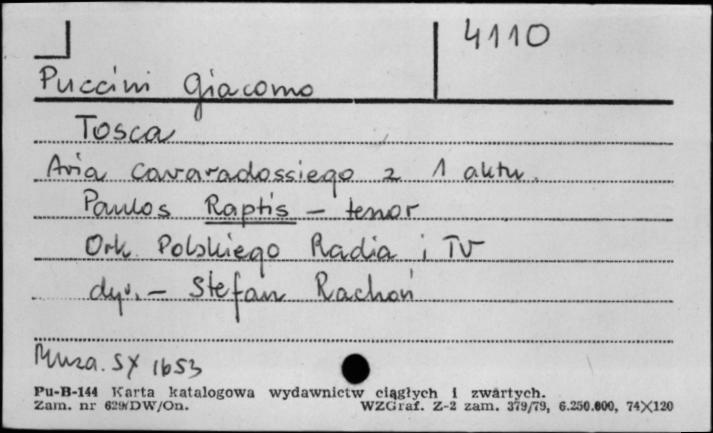 4110
Puccini Giacomo
Tosca
Aria Cavaradossiego z 1 aktu.
Paulos Raptis – tenor
Ork. Polskiego Radia i TV
dyr. – Stefan Rachoń
Muza. SX 1653
Pu-B-144 Karta katalogowa wydawnictw ciągłych i zwartych.
Zam. nr 629/DW/On. WZGraf. Z-2 zam. 379/79, 6.250.000, 74X120